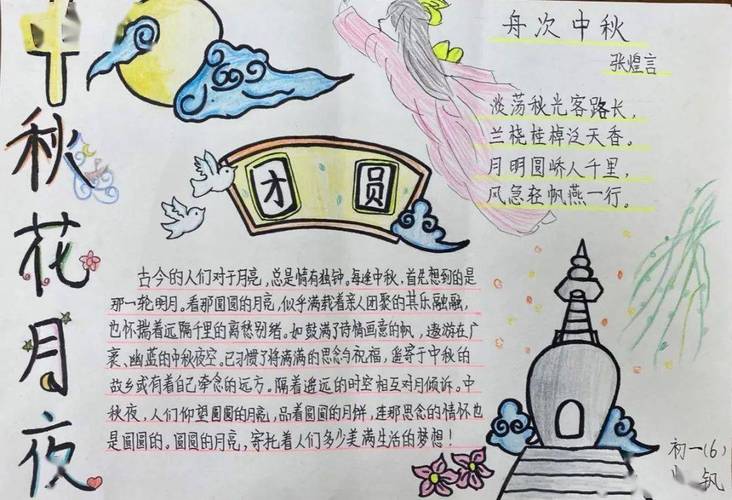 中秋花月夜
舟次中秋
张煌言
淡荡秋光客路长，
兰桡桂棹泛天香。
月明圆峤人千里，
风急轻帆燕一行。
团圆
古今的人们对于月亮，总是情有独钟。每逢中秋，首先想到的是
那一轮明月。看那圆圆的月亮，似乎满载着亲人团聚的其乐融融，
也怀揣着远隔千里的离愁别绪。如鼓满了诗情画意的帆，遨游在广
袤、幽蓝的中秋夜空。已习惯了将满满的思念与祝福，遥寄于中秋的
故乡或有着自己牵念的远方。隔着遥远的时空相互对月倾诉。中
秋夜，人们仰望圆圆的月亮，品着圆圆的月饼，连那思念的情怀也
是圆圆的。圆圆的月亮，寄托着人们多少美满生活的梦想！
初一（6）